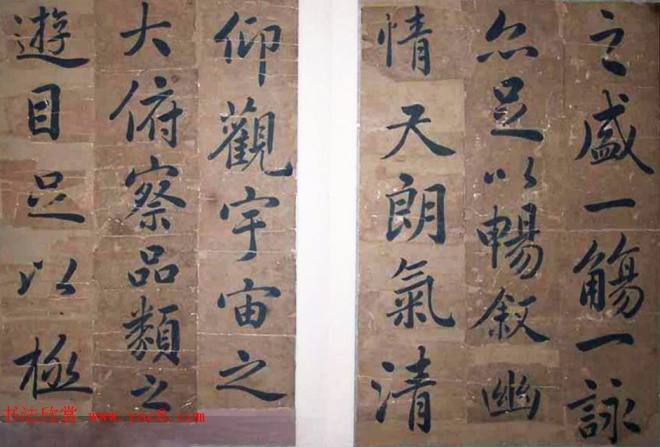 之盛一觴一詠
亦足以暢叙幽
情天朗氣清
仰觀宇宙之
大俯察品類之
遊目足以極
书法欣赏 www.yac8.com